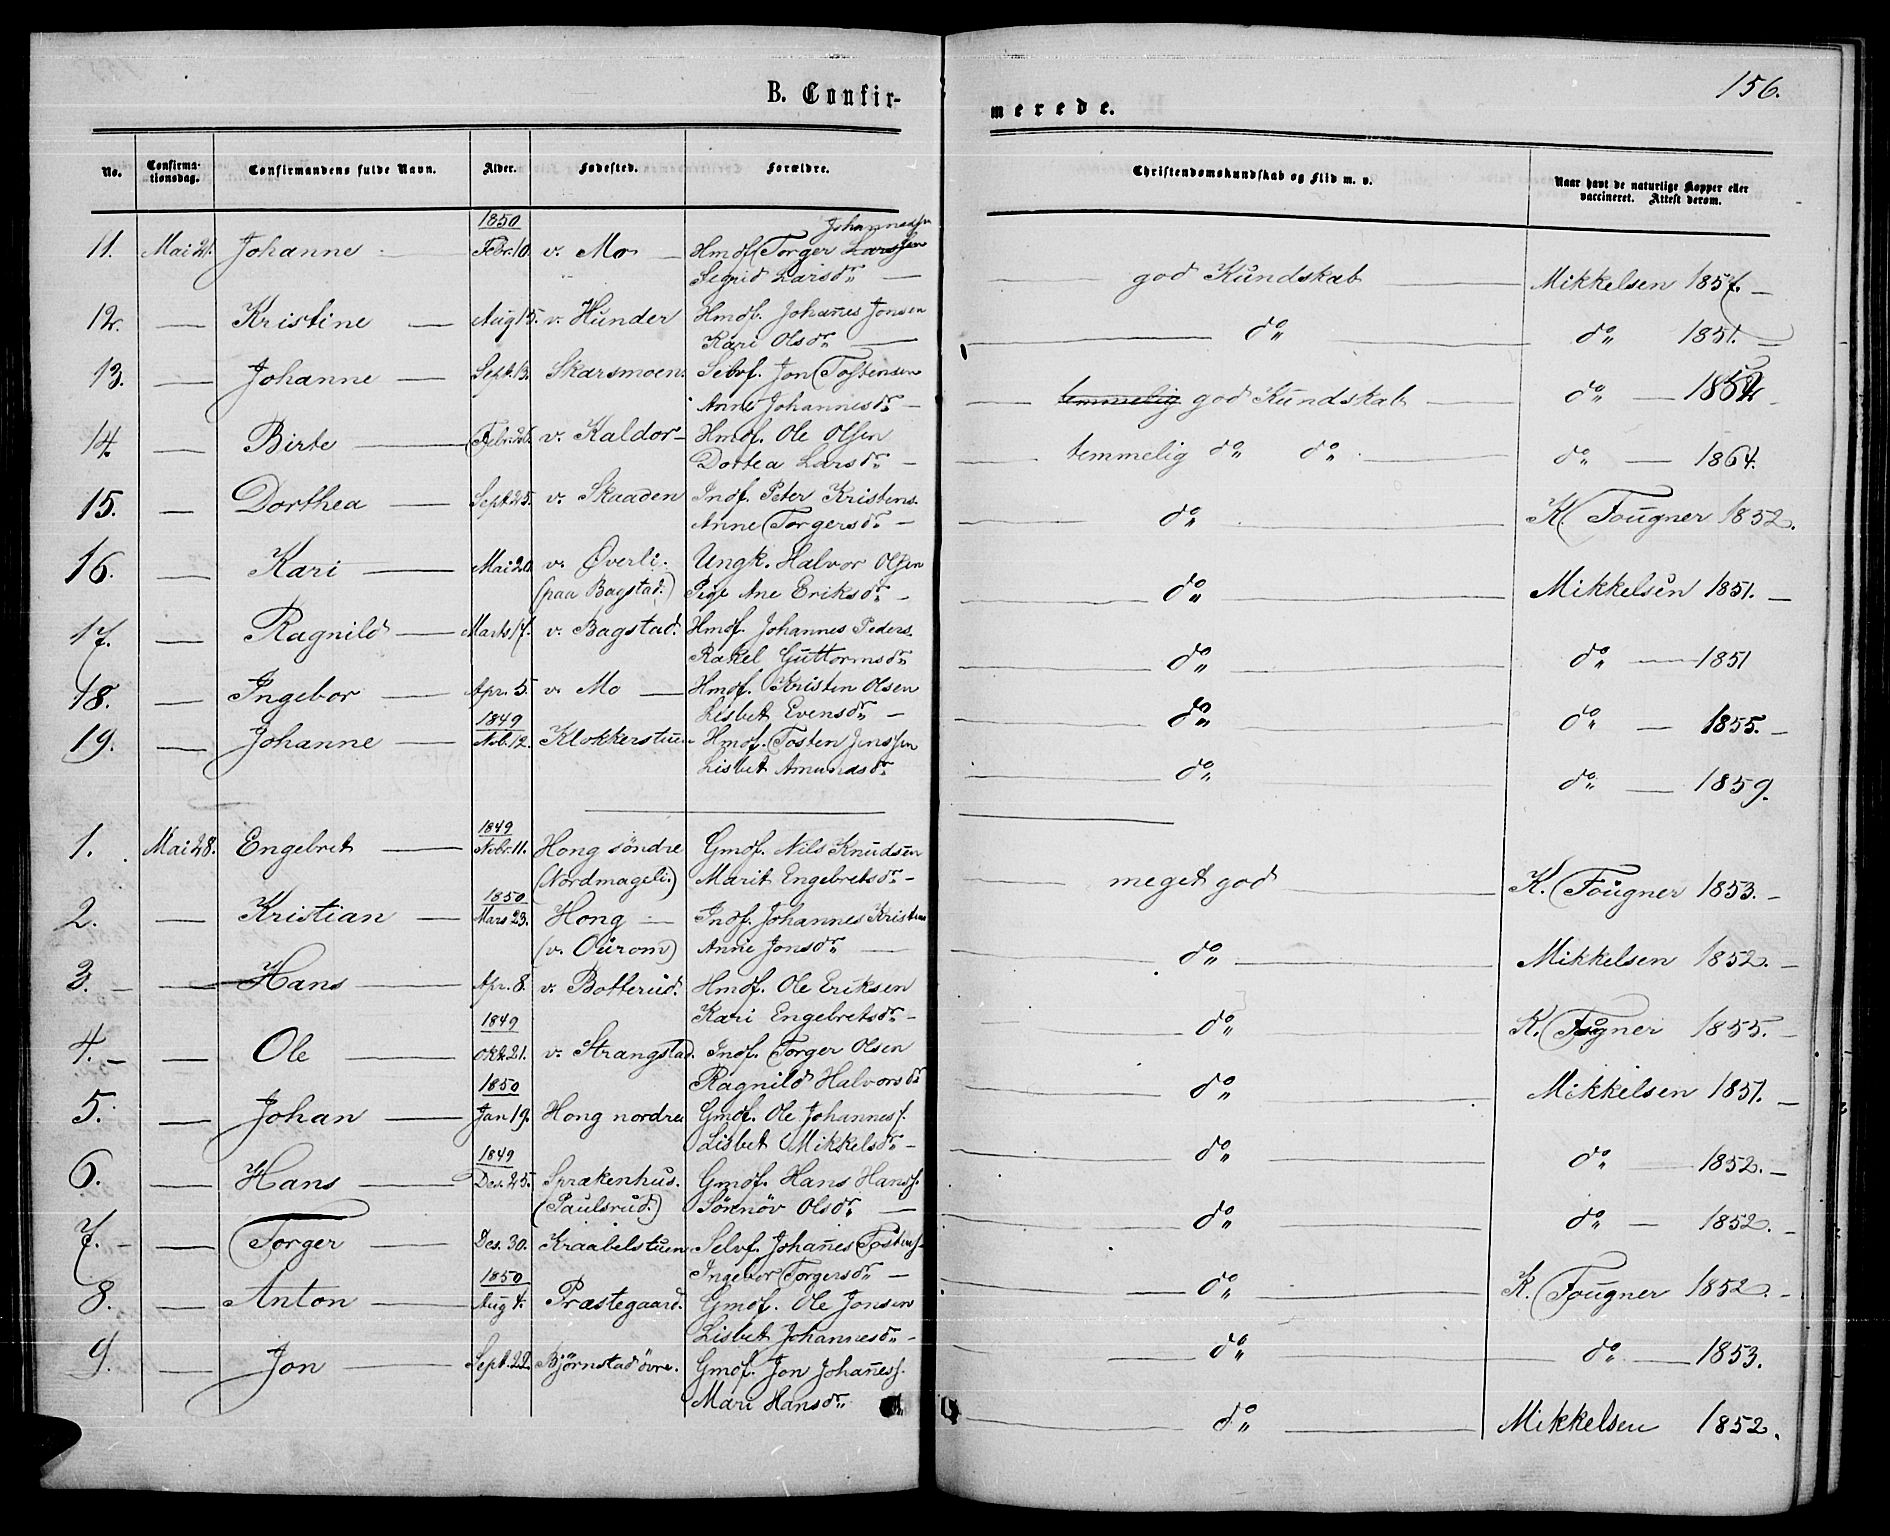 156.
B. Confirmerede.
No. Confirmationsdag. Confirmandens fulde Navn. Alder. Fødested. Forældre. Christendomskundskab og Flid m. v. Naar havt de naturlige Kopper eller vaccineret. Attest derom.
1850 Johannessen
11. Mai 21. Johanne Febr. 10. v. Mo Hmdf. Torger Larssen
Segrid Larsdr. god Kundskab Mikkelsen 1857.
12. Kristine Aug 15. v. Hunder Hmdf. Johañes Jonsen
Kari Olsdr. do do 1851.
13. Johanne Sept. 13. Skarsmoen. Selvf. Jon Tostensen
Anne Johannesdr. temmelig god Kundskab do 1852
14. Birte Febr. 26. v. Kaldor Hmdf. Ole Olsen
Dortea Larsdr. temmelig do do do 1864.
15. Dorthea Sept. 25. v. Skaaden Indf. Peter Kristens.
Anne Torgersdr. do K. Fougner 1852.
16. Kari Mai 20. v. Øverli. Ungk. Halvor Olsen
(paa Bagstad.) Pige Ane Eriksdr. do Mikkelsen 1851.
17. Ragnild Marts 17. v. Bagstad. Hmdf. Johannes Peders.
Rakel Guttormsdr. do do 1851
18. Ingebor Apr. 5. v. Mo Hmdf. Kristen Olsen
Lisbet Evensdr. do do 1855.
1849
19. Johanne Nob. 12. Klokkerstuen Hmdf. Tosten Jenssen
Lisbet Amundsdr. do do 1859.
1849
1. Mai 28. Engebret Nvbr. 11. Hong söndre Gmdf. Nils Knudsen
(Nordmageli.) Marit Engebretsdr. meget god K. Fougner 1853.
1850
2. Kristian Mars 23. Hong Indf. Johannes Kristens
(v. Ourom) Anne Jonsdr. do Mikkelsen 1852.
3. Hans Apr. 8. v. Botterud. Hmdf. Ole Eriksen
Kari Engebretsdr. do K. Fougner 1855.
1849
4. Ole Okt. 21. v. Strangstad. Indf. Torger Olsen
Ragnild Halvorsdr do Mikkelsen 1851.
1850
5. Johan Jan 19. Hong nordre Gmdf. Ole Johannes.
Lisbet Mikkelsdr. do do 1852.
1849
6. Hans Des. 25. Sprækenhus. Gmdf. Hans Hans.
(Paulsrud.) Sönnöv Olsdr. do do 1852.
7. Torger Des. 30. Kraabelstuen Selvf. Johañes Tostens.
Ingebor Torgersdr. do K. Fougner 1852.
1850
8. Anton Aug 4. Præstegaard. Gmdf. Ole Jonsen
Lisbet Johannesdr. do do 1853.
9. Jon Sept. 22. Björnstad övre. Gmdf. Jon Johañes.
Mari Hansdr. do Mikkelsen 1852.